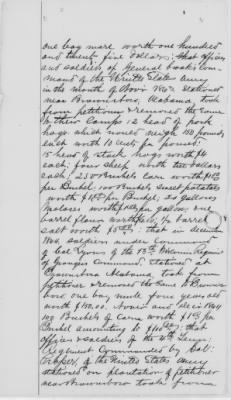 one bay mare worth one hundred
and twenty five dollars; that officers
and soldiers of General Hooker's com
mand of the United States army
in the month of 1864 stationed
near Brownsboro, Alabama, took
from petitioner and removed the same
to their Camps 12 head of pork
hogs which would weigh 150 pounds
each worth 10 cents per pound;
15 head of stock hogs worth
each; four sheep worth two dollars
each; 250 Bushels Corn worth
per Bushel; 100 Bushels sweet potatoes
worth per Bushel; 20 gallons
molasses worth per gallon; one
barrel flour worth barrel
salt worth that in december
1864 soldiers under Command
of Col. Lyons of the 13th
of Granger's Command stationed at
Brownsboro Alabama, took from
petitioner & removed the same to Browns-
boro one bay mule four years old
worth Novr. and Decr. 1864
100 Bushels of Corn worth per
Bushel amounting to that
officers & soldiers of the 4th Tenn.
Regiment Commanded by Col.
of the United States army
stationed on plantation of petitioner
near Brownsboro took from